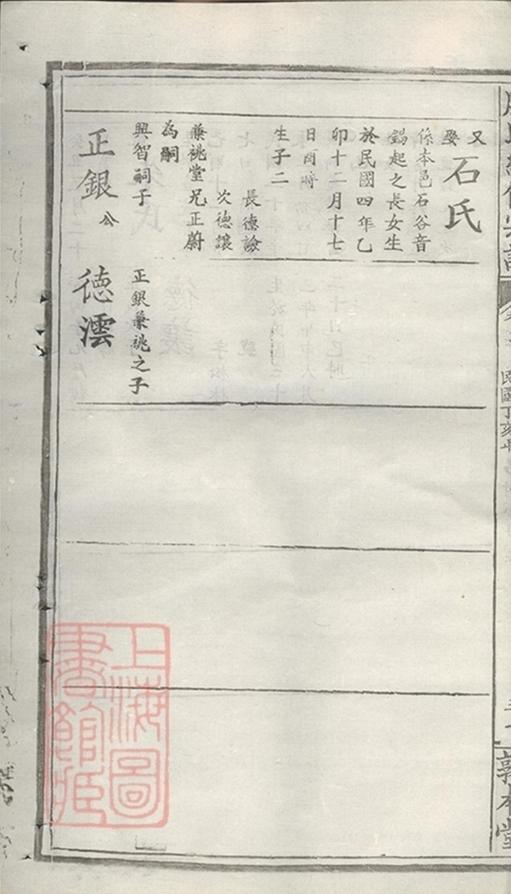 又
娶
石氏
係本邑石谷音
錫起之長女生
於民國四年乙
卯十二月十七
日酉時
生子二
長德諗
次德讓
兼祧堂兄正蔚
為嗣
興智嗣子
正銀公
德澐
正銀兼祧之子
民國丁亥
敦本堂
上海圖
書館藏